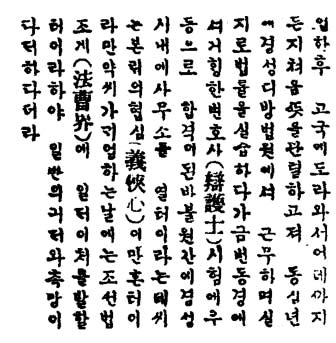 업한후 고국에도라와서어데까지
든지처음뜻을관털하고저 동십년
에경성디방법원에서 근무하며실
지로법률을실습하다가금번동경에
서거힝한변호사(辯護士)시험에우
등으로 합격이된바불원간에경성
시내에사무소를 열터이라는데씨
는본릭의협심(義俠心)이만흔터이
라만약씨가기업하는날에는조선법
조계(法曹界)에 일더이처를발할
터이라하야 일반의긔더와촉망이
다더하다더라